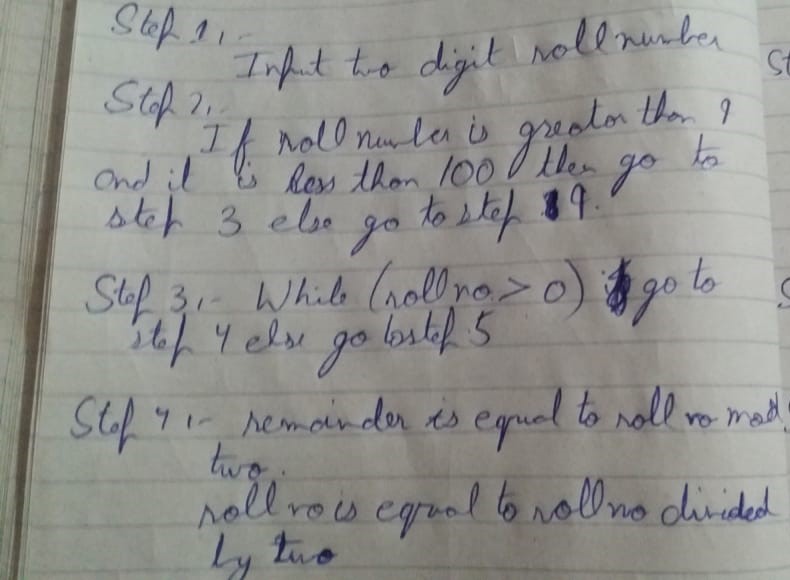 Step 1,-
Input two digit roll number
St
Step 2,-
If roll number is greater than 9
and it is less than 100 then go to
step 3 else go to step 9.
Step 3,- While (roll no. > 0) go to
step 4 else go to step 5
Step 4,- remainder is equal to roll no mod
two.
roll no is equal to roll no divided
by two